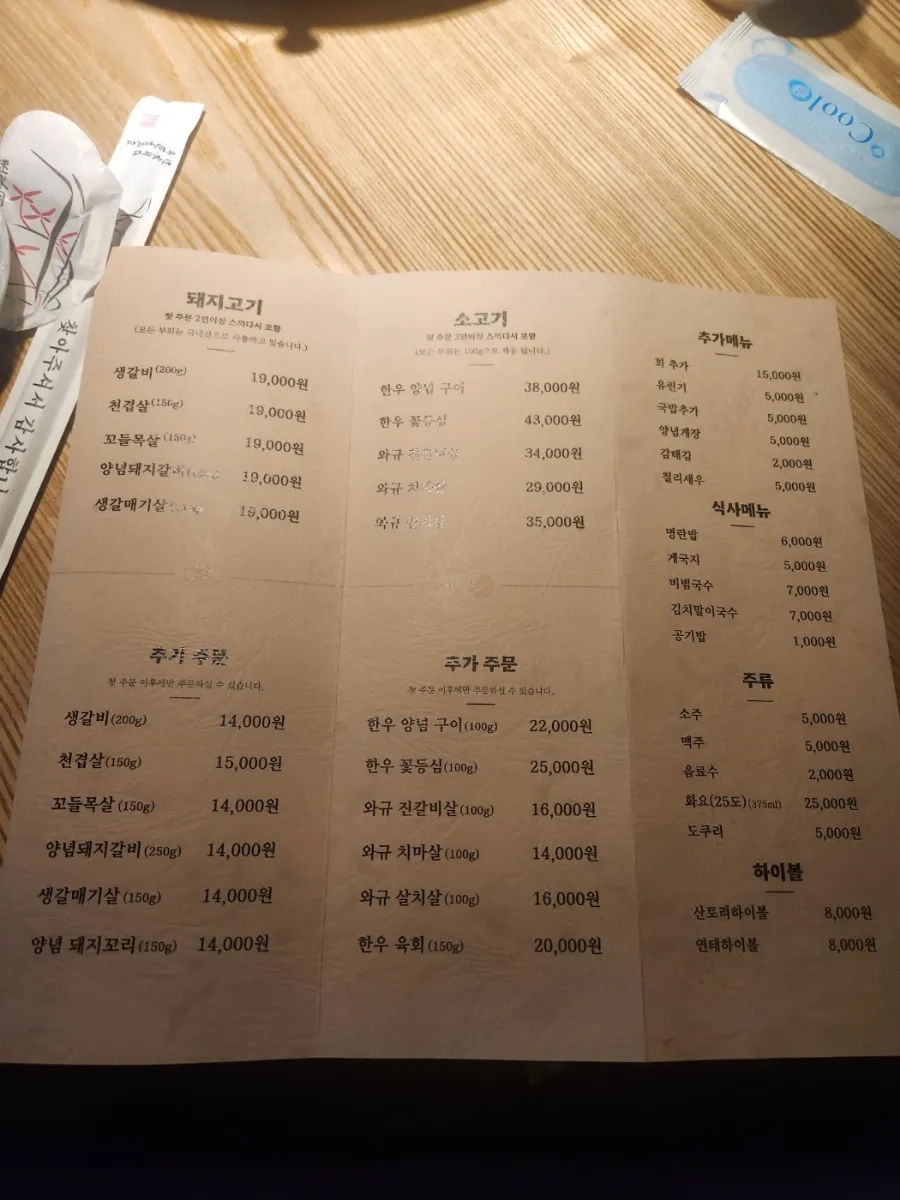 Coolo
찾아주셔서 감사합니
돼지고기
첫 주문 2인이상 스끼다시 포함
(모든 부위는 국내산으로 사용하고 있습니다.)
생갈비 (200g) 19,000원
천겹살 (150g) 19,000원
꼬들목살 (150g) 19,000원
양념돼지갈 19,000원
생갈매기살 19,000원
추가 주문
첫 주문 이후에만 주문하실 수 있습니다.
생갈비 (200g) 14,000원
천겹살 (150g) 15,000원
꼬들목살 (150g) 14,000원
양념돼지갈비 (250g) 14,000원
생갈매기살 (150g) 14,000원
양념 돼지꼬리 (150g) 14,000원
소고기
첫 주문 2인이상 스끼다시 포함
(모든 부위는 150g으로 제공 됩니다.)
한우 양념 구이 38,000원
한우 꽃등심 43,000원
와규 34,000원
와규 29,000원
와규 35,000원
추가 주문
첫 주문 이후에만 주문하실 수 있습니다.
한우 양념 구이 (100g) 22,000원
한우 꽃등심 (100g) 25,000원
와규 진갈비살 (100g) 16,000원
와규 치마살 (100g) 14,000원
와규 살치살 (100g) 16,000원
한우 육회 (150g) 20,000원
추가메뉴
회 추가 15,000원
유린기 5,000원
국밥추가 5,000원
양념게장 5,000원
감태김 2,000원
칠리새우 5,000원
식사메뉴
명란밥 6,000원
게국지 5,000원
비빔국수 7,000원
김치말이국수 7,000원
공기밥 1,000원
주류
소주 5,000원
맥주 5,000원
음료수 2,000원
화요(25도) (375ml) 25,000원
도쿠리 5,000원
하이볼
산토리하이볼 8,000원
연태하이볼 8,000원